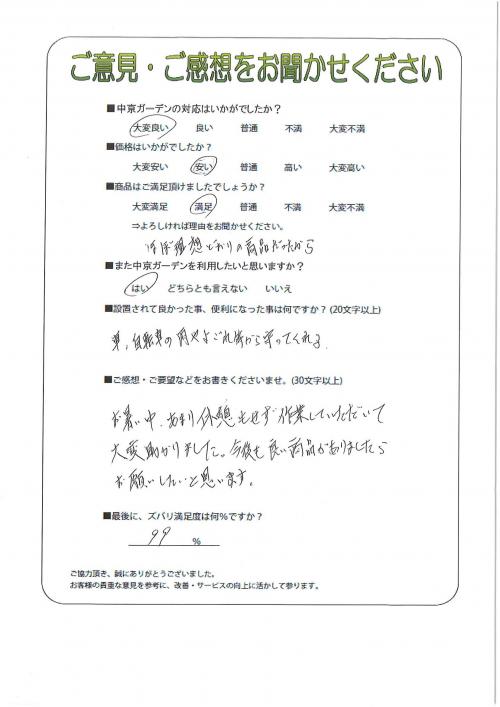 ご意見・ご感想をお聞かせください
■中京ガーデンの対応はいかがでしたか？
大変良い 良い 普通 不満 大変不満
■価格はいかがでしたか？
大変安い 安い 普通 高い 大変高い
■商品はご満足頂けましたでしょうか？
大変満足 満足 普通 不満 大変不満
⇒よろしければ理由をお聞かせください。
ほぼ理想どおりの商品だったから
■また中京ガーデンを利用したいと思いますか？
はい どちらとも言えない いいえ
■設置されて良かった事、便利になった事は何ですか？(20文字以上)
車、自転車の雨やよごれ等から守ってくれる
■ご感想・ご要望などをお書きくださいませ。(30文字以上)
お暑い中、あまり休憩もせず作業していただいて
大変助かりました。今後も良い商品がありましたら
お願いしたいと思います。
■最後に、ズバリ満足度は何%ですか？
99 %
ご協力頂き、誠にありがとうございました。
お客様の貴重な意見を参考に、改善・サービスの向上に活かして参ります。